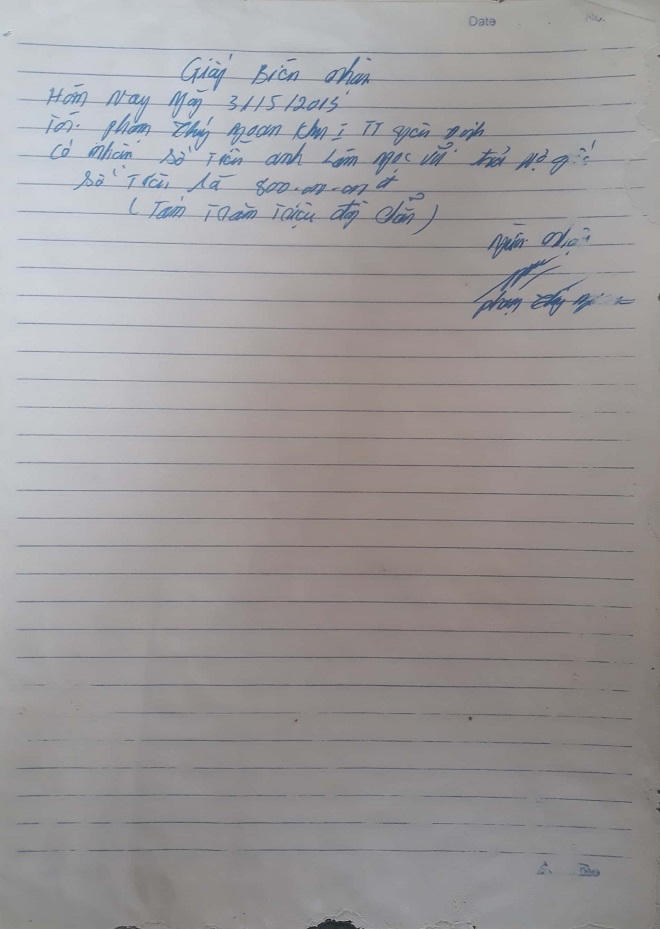 Date
Giấy Biên nhận
Hôm nay ngày 31/5/2015
Tôi. phạm Thúy ngoan khu I TT yên Định
Có nhận số Tiền anh Lâm ngọc Vũ trả nợ gốc
số Tiền là 800.000.000đ
(Tám Trăm Triệu đồng chẵn)
người nhận
phạm Thúy